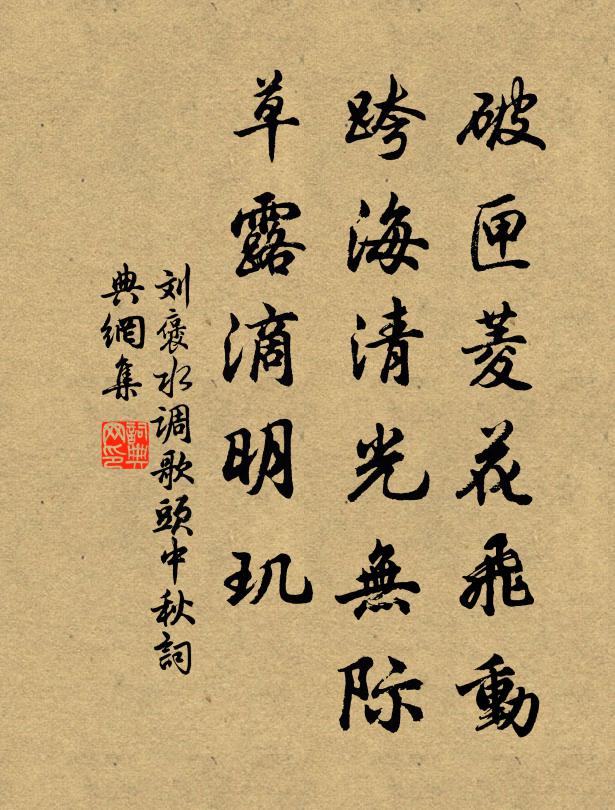 破匣菱花飛動
跨海清光無际
草露滴明玑
刘褒水调歌頭中秋詞
典網集
詞典网印